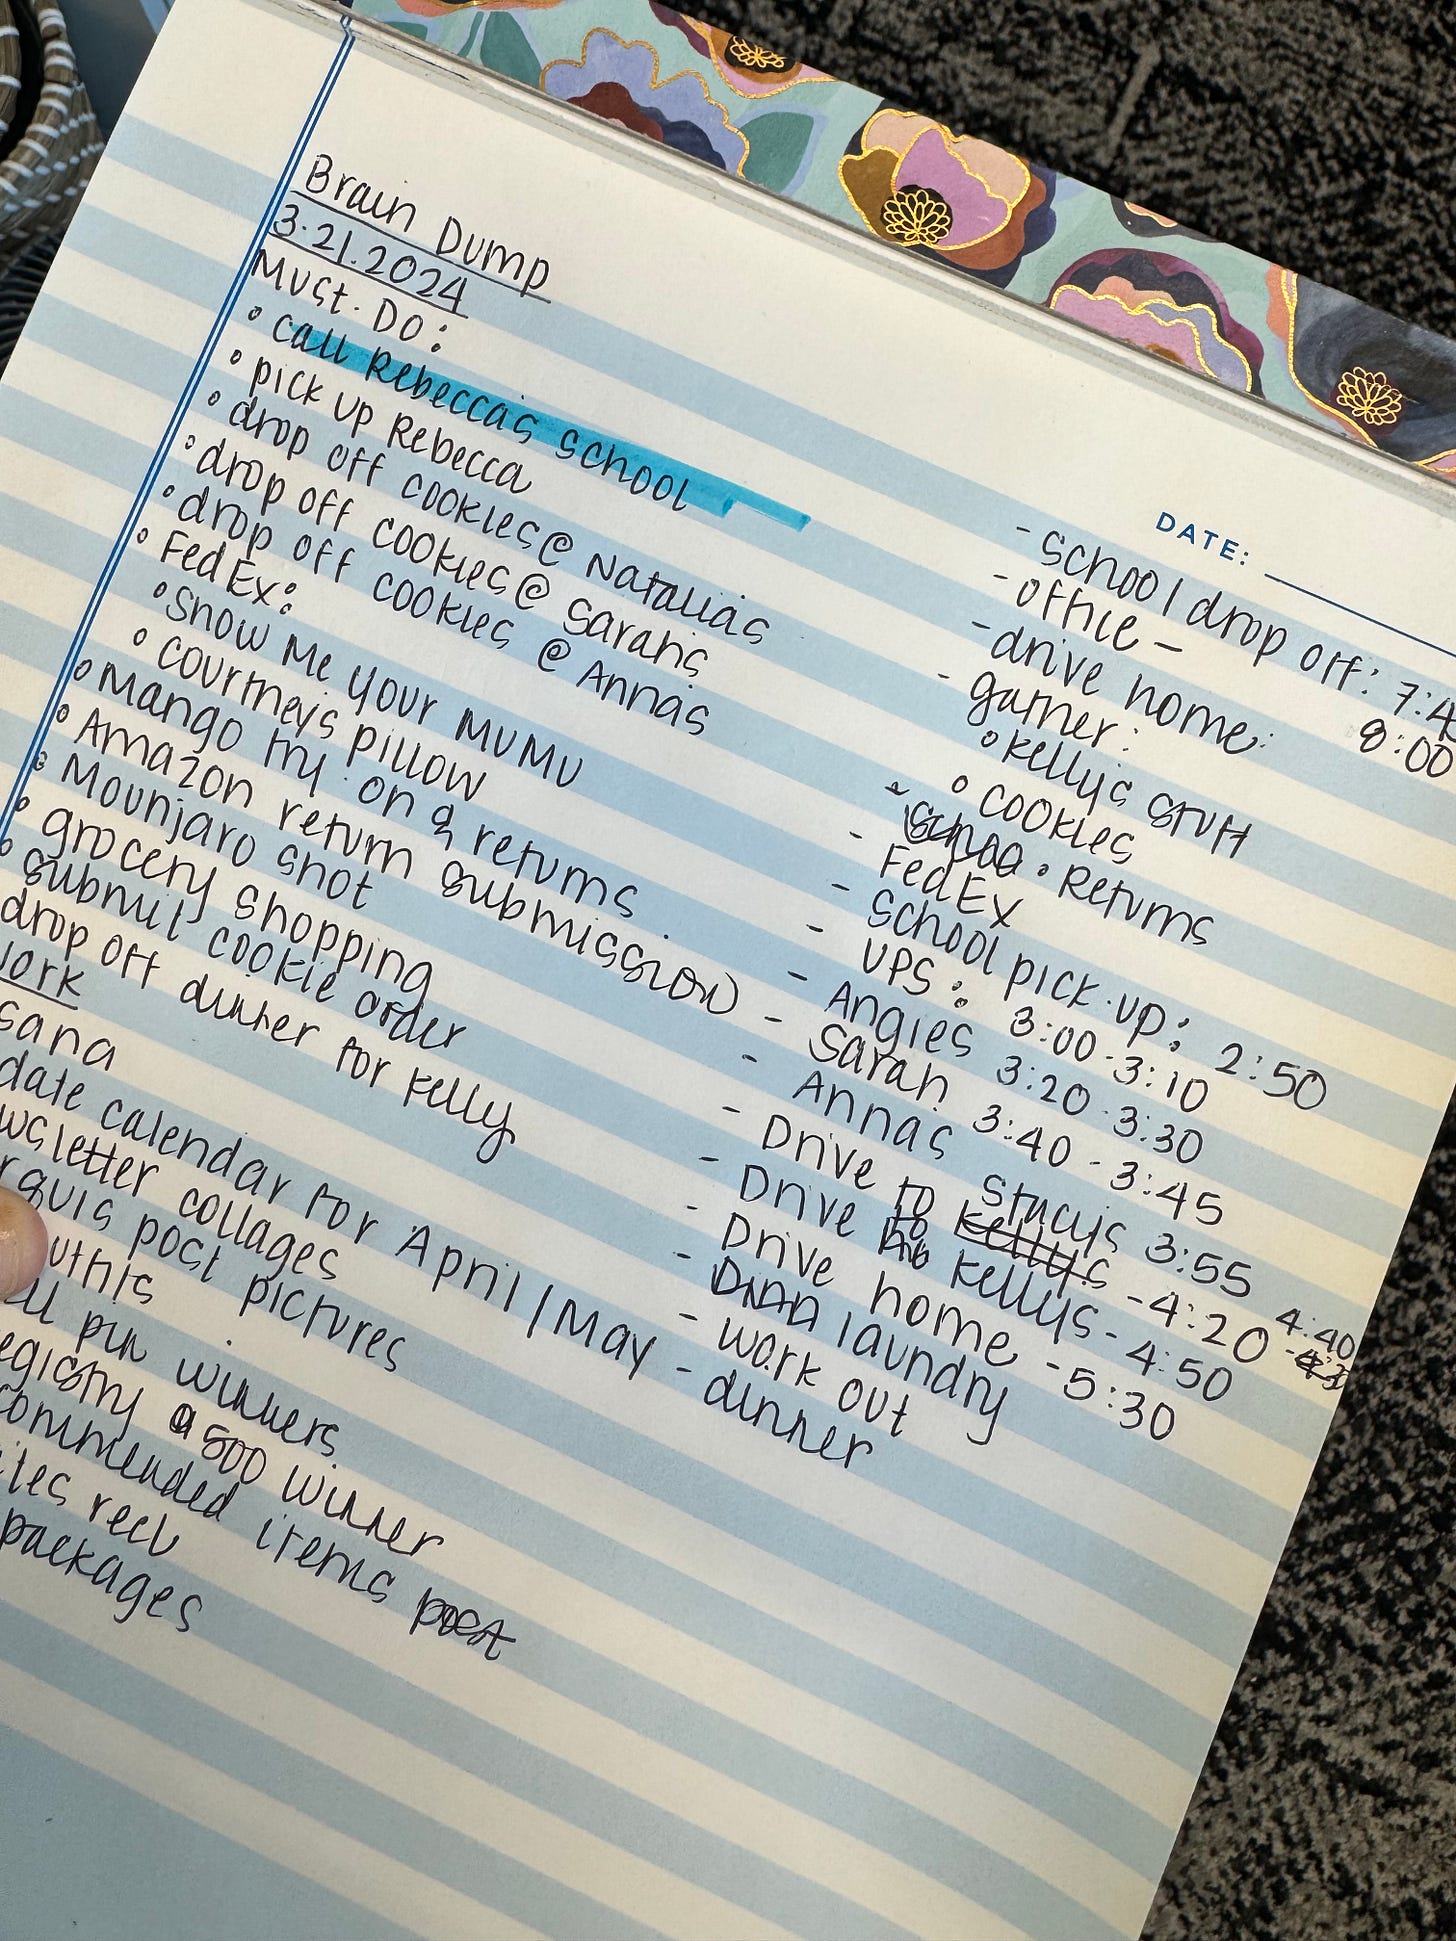 Brain Dump
3.21.2024
Must. Do:
• call Rebecca's school
• pick up Rebecca
• drop off cookies @ Natalia's
• drop off cookies @ Sarah's
• drop off cookies @ Anna's
• FedEx:
• Show Me Your MUMU
• Courtney's pillow
• Mango try on & returns
• Amazon return submission
• Mounjaro shot
• grocery shopping
• submit cookie order
drop off dinner for Kelly
ork
sana
date calendar for April/May
wsletter collages
post pictures
pin winners
egistry a 500 winner
commended items post
reel
packages
DATE:
- school drop off: 7:4
- office - 8:00
- drive home:
- garner:
• Kelly's stuff
• cookies
• Returns
- FedEx
- school pick. up: 2:50
- UPS: 3:00-3:10
- Angies 3:20-3:30
- Sarah 3:40-3:45
- Annas 3:55
- Drive to Stacy's Kellys -4:20 4:40
- Drive to Kellys - 4:50
- Drive home -5:30
- laundry
- work out
- dinner